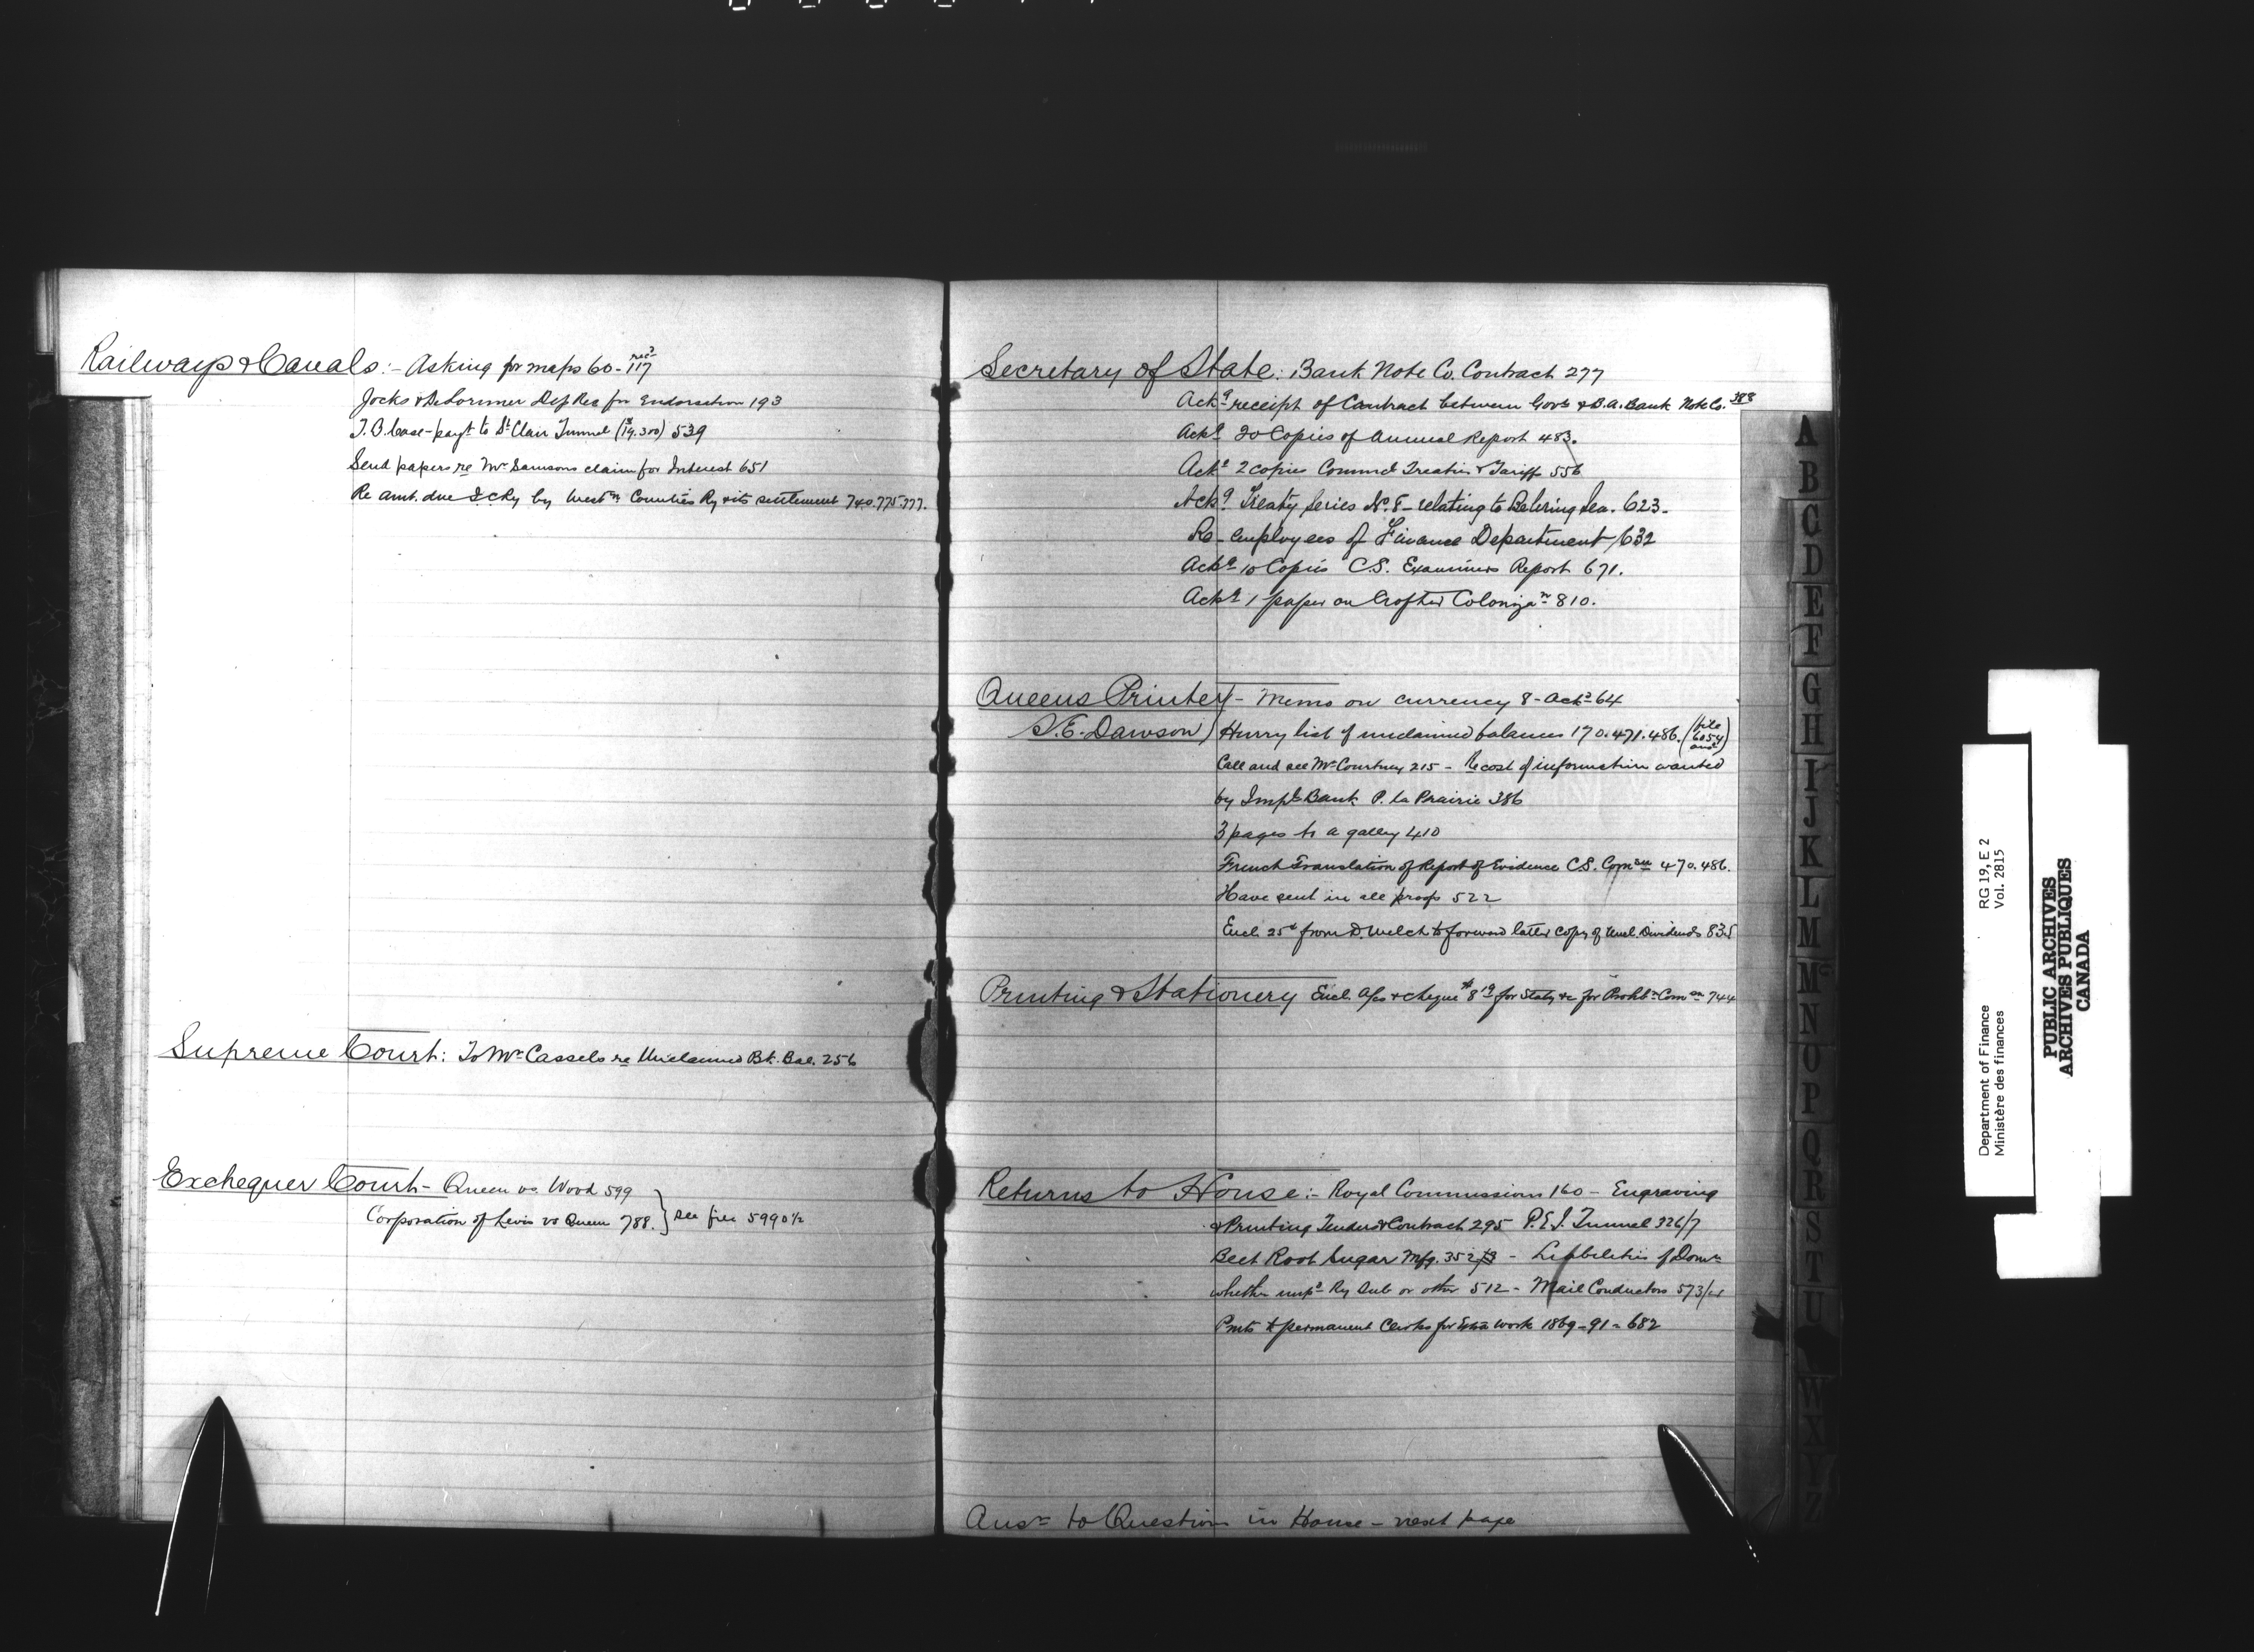 Railways & Canals:- Asking for maps 60 - recd 117
Jocks & DeLorimier Dep Rec for Endorsation 193
T.B. Case - payt to St Clair Tunnel (19.300) 539
Send papers re Mr Samsons claim for Interest 651
Re amt. due I C Ry by Westn Counties Ry & its settlement 740.775.777.
Supreme Court: To Mr Cassels re Unclaimed Bk. Bal. 256
Exchequer Court - Queen vs. Wood 599
Corporation of Levis vs Queen 788. } see file 5990½
Secretary of State: Bank Note Co. Contract 277
Ackg receipt of Contract between Govt & B.A. Bank Note Co. 388
Ackg 20 Copies of Annual Report 483.
Ackg 2 copies Commcl Treaties & Tariff 556
Ackg Treaty Series No. 8 - relating to Behring Sea. 623-
Re - employees of Finance Department 632
Ackg 10 Copies C.S. Examiners Report 671.
Ackg 1 paper on Crofter Colonizan 810.
Queens Printer - Memo on currency 8 - Ackg 64
S.E. Dawson) Hurry list of unclaimed balances 170.471.486. (file 6054 and)
Call and see Mr Courtney 215 - Re cost of information wanted
by Impl Bank P. la Prairie 386
3 pages to a galley 410
French Translation of Report of Evidence C.S. Comsn 470.486.
Have sent in all proofs 522
Encl. 25¢ from D. Welch to forward latter copy of Uncl. Dividends 835
Printing & Stationery Encl. A/cs & cheque $8 19 for Staty &c for Prohbn Comsn 744
Returns to House:- Royal Commissions 160 - Engraving
& Printing Tenders & Contract 295 P.E.I. Tunnel 326/7
Beet Root Sugar Mfg. 352 - Liabilities of Domn
whether unpd Ry Sub or other 512 - Mail Conductors 573/4
Pmts to permanent Clerks for Extra work 1869-91 - 682
Ansr to Question in House - next page
A
B
C
D
E
F
G
H
I
J
K
L
M
Mc
N
O
P
Q
R
S
T
U
W
X
Y
Z
Department of Finance RG 19, E 2
Ministère des finances Vol. 2815
PUBLIC ARCHIVES
ARCHIVES PUBLIQUES
CANADA